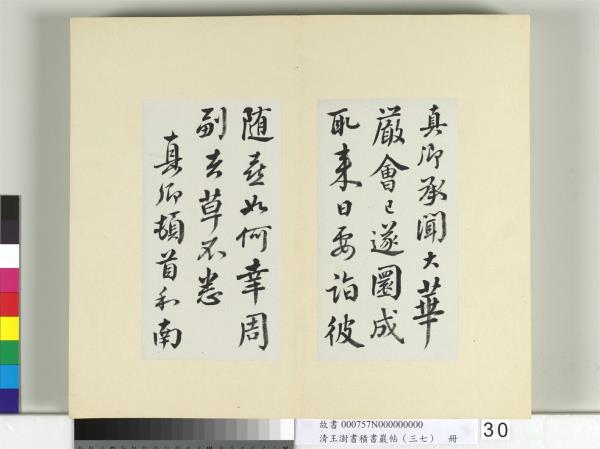 真卿承聞大華
嚴會已遂圓成
取來日要詣彼
随喜如何幸周
副去草不悉
真卿頓首和南
故書 000757N000000000
清王澍書積書巖帖（三七） 冊
30